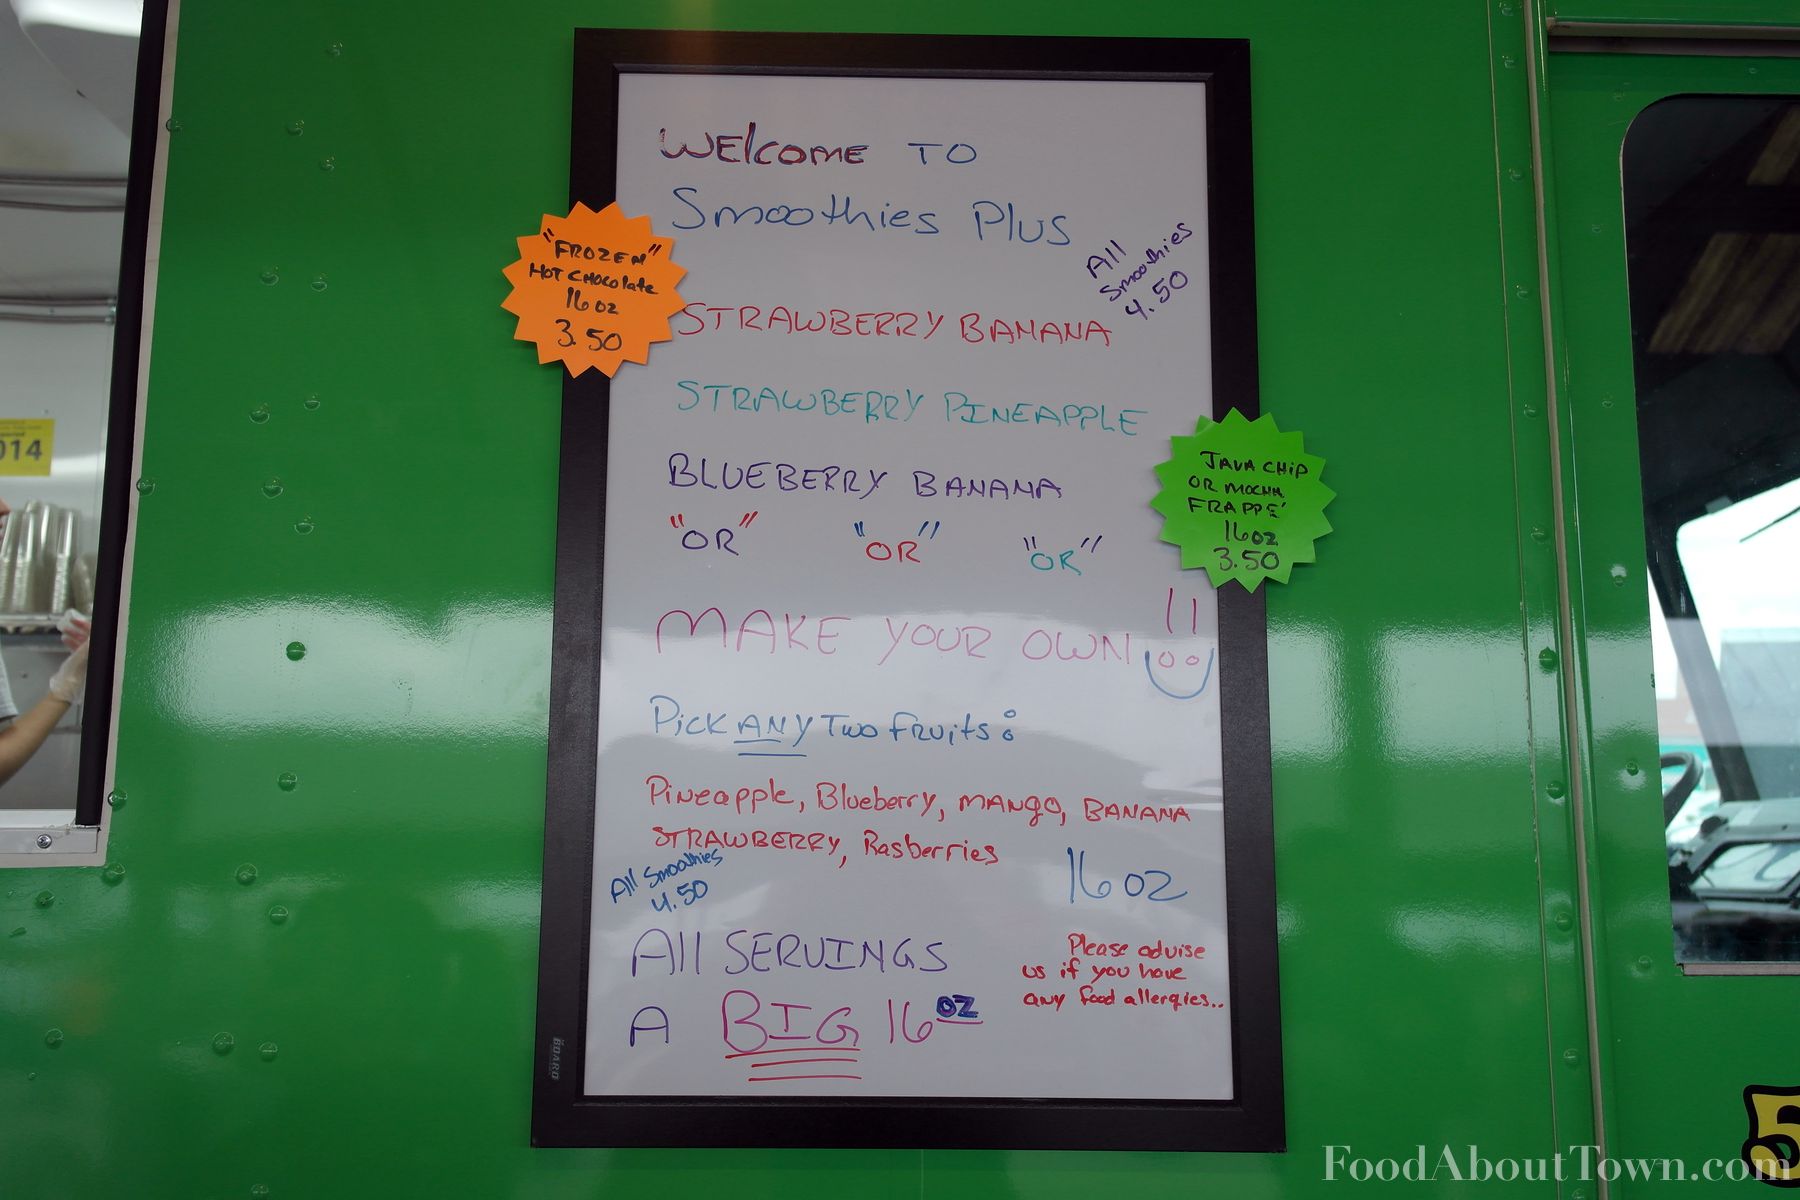 WELCOME TO
Smoothies Plus
All
Smoothies
4.50
"FROZEN"
HOT CHOCOLATE
16 oz
3.50
STRAWBERRY BANANA
STRAWBERRY PINEAPPLE
BLUEBERRY BANANA
JAVA CHIP
OR MOCHA
FRAPPE'
16 oz
3.50
"OR" "OR" "OR"
MAKE YOUR OWN !!
Pick ANY Two Fruits:
Pineapple, Blueberry, MANGO, BANANA
STRAWBERRY, Rasberries
All Smoothies
4.50
16 oz
All SERVINGS
A BIG 16 OZ
Please advise
us if you have
any food allergies..
014
BOARD
5
FoodAboutTown.com